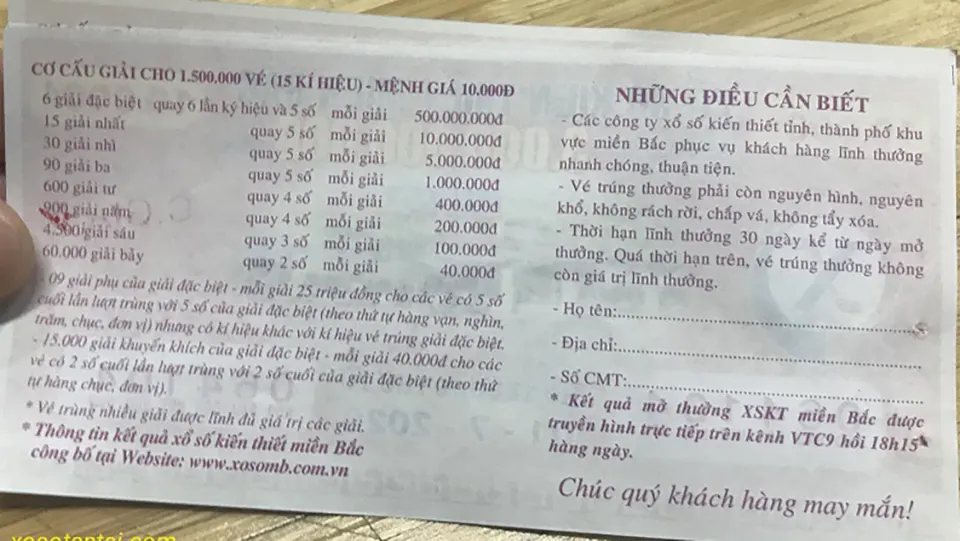 CƠ CẤU GIẢI CHO 1.500.000 VÉ (15 KÍ HIỆU) - MỆNH GIÁ 10.000Đ
6 giải đặc biệt quay 6 lần ký hiệu và 5 số mỗi giải 500.000.000đ
15 giải nhất quay 5 số mỗi giải 10.000.000đ
30 giải nhì quay 5 số mỗi giải 5.000.000đ
90 giải ba quay 5 số mỗi giải 1.000.000đ
600 giải tư quay 4 số mỗi giải 400.000đ
900 giải năm quay 4 số mỗi giải 200.000đ
4.500 giải sáu quay 3 số mỗi giải 100.000đ
60.000 giải bảy quay 2 số mỗi giải 40.000đ
- 09 giải phụ của giải đặc biệt - mỗi giải 25 triệu đồng cho các vé có 5 số
cuối lần lượt trùng với 5 số của giải đặc biệt (theo thứ tự hàng vạn, nghìn,
trăm, chục, đơn vị) nhưng có kí hiệu khác với kí hiệu vé trúng giải đặc biệt.
- 15.000 giải khuyến khích của giải đặc biệt - mỗi giải 40.000đ cho các
vé có 2 số cuối lần lượt trùng với 2 số cuối của giải đặc biệt (theo thứ
tự hàng chục, đơn vị).
* Vé trúng nhiều giải được lĩnh đủ giá trị các giải.
* Thông tin kết quả xổ số kiến thiết miền Bắc
công bố tại Website: www.xosomb.com.vn
NHỮNG ĐIỀU CẦN BIẾT
- Các công ty xổ số kiến thiết tỉnh, thành phố khu
vực miền Bắc phục vụ khách hàng lĩnh thưởng
nhanh chóng, thuận tiện.
- Vé trúng thưởng phải còn nguyên hình, nguyên
khổ, không rách rời, chắp vá, không tẩy xóa.
- Thời hạn lĩnh thưởng 30 ngày kể từ ngày mở
thưởng. Quá thời hạn trên, vé trúng thưởng không
còn giá trị lĩnh thưởng.
- Họ tên:
- Địa chỉ:
- Số CMT:
* Kết quả mở thưởng XSKT miền Bắc được
truyền hình trực tiếp trên kênh VTC9 hồi 18h15
hàng ngày.
Chúc quý khách hàng may mắn!